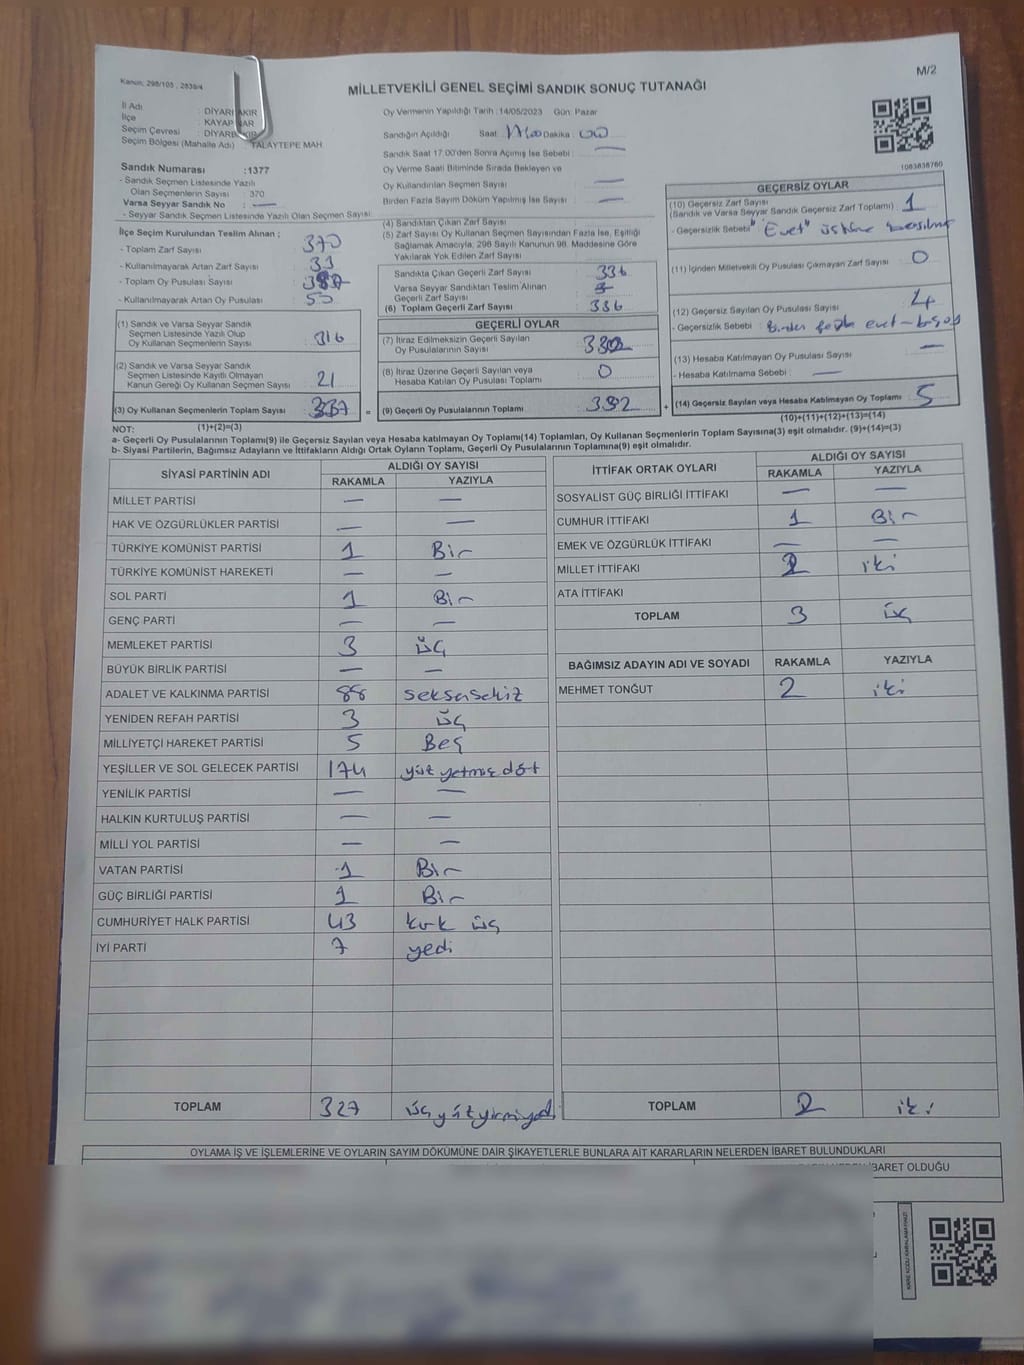 M/2
Kanun: 298/105 , 2839/4
MİLLETVEKİLİ GENEL SEÇİMİ SANDIK SONUÇ TUTANAĞI
İl Adı : DİYARBAKIR
İlçe : KAYAPINAR
Seçim Çevresi : DİYARBAKIR
Seçim Bölgesi (Mahalle Adı) : TALAYTEPE MAH
Sandık Numarası :1377
- Sandık Seçmen Listesinde Yazılı
Olan Seçmenlerin Sayısı : 370
Varsa Seyyar Sandık No : —
- Seyyar Sandık Seçmen Listesinde Yazılı Olan Seçmen Sayısı:
İlçe Seçim Kurulundan Teslim Alınan ;
- Toplam Zarf Sayısı : 370
- Kullanılmayarak Artan Zarf Sayısı : 33
- Toplam Oy Pusulası Sayısı :
- Kullanılmayarak Artan Oy Pusulası : 50
(1) Sandık ve Varsa Seyyar Sandık
Seçmen Listesinde Yazılı Olup
Oy Kullanan Seçmenlerin Sayısı : 316
(2) Sandık ve Varsa Seyyar Sandık
Seçmen Listesinde Kayıtlı Olmayan
Kanun Gereği Oy Kullanan Seçmen Sayısı : 21
(3) Oy Kullanan Seçmenlerin Toplam Sayısı : 337 =
Oy Vermenin Yapıldığı Tarih : 14/05/2023 Gün: Pazar
Sandığın Açıldığı Saat : Dakika : 00
Sandık Saat 17:00'den Sonra Açımış İse Sebebi : —
Oy Verme Saati Bitiminde Sırada Bekleyen ve
Oy Kullandırılan Seçmen Sayısı : —
Birden Fazla Sayım Döküm Yapılmış İse Sayısı : —
(4) Sandıktan Çıkan Zarf Sayısı :
(5) Zarf Sayısı Oy Kullanan Seçmen Sayısından Fazla İse, Eşitliği
Sağlamak Amacıyla, 298 Sayılı Kanunun 98. Maddesine Göre
Yakılarak Yok Edilen Zarf Sayısı :
Sandıkta Çıkan Geçerli Zarf Sayısı : 336
Varsa Seyyar Sandıktan Teslim Alınan
Geçerli Zarf Sayısı :
(6) Toplam Geçerli Zarf Sayısı : 336
GEÇERLİ OYLAR
(7) İtiraz Edilmeksizin Geçerli Sayılan
Oy Pusulalarının Sayısı : 332
(8) İtiraz Üzerine Geçerli Sayılan veya
Hesaba Katılan Oy Pusulası Toplamı : 0
(9) Geçerli Oy Pusulalarının Toplamı : 332 +
1083838760
GEÇERSİZ OYLAR
(10) Geçersiz Zarf Sayısı : 1
(Sandık ve Varsa Seyyar Sandık Geçersiz Zarf Toplamı)
- Geçersizlik Sebebi : "Evet" üstüne basılmış
(11) İçinden Milletvekili Oy Pusulası Çıkmayan Zarf Sayısı : 0
(12) Geçersiz Sayılan Oy Pusulası Sayısı : 4
- Geçersizlik Sebebi : Birden fazla evet
(13) Hesaba Katılmayan Oy Pusulası Sayısı : —
- Hesaba Katılmama Sebebi : —
(14) Geçersiz Sayılan veya Hesaba Katılmayan Oy Toplamı : 5
(1)+(2)=(3)
(10)+(11)+(12)+(13)=(14)
NOT:
a- Geçerli Oy Pusulalarının Toplamı(9) ile Geçersiz Sayılan veya Hesaba katılmayan Oy Toplamı(14) Toplamları, Oy Kullanan Seçmenlerin Toplam Sayısına(3) eşit olmalıdır. (9)+(14)=(3)
b- Siyasi Partilerin, Bağımsız Adayların ve İttifakların Aldığı Ortak Oyların Toplamı, Geçerli Oy Pusulalarının Toplamına(9) eşit olmalıdır.
SİYASİ PARTİNİN ADI ALDIĞI OY SAYISI
RAKAMLA YAZIYLA
MİLLET PARTİSİ — —
HAK VE ÖZGÜRLÜKLER PARTİSİ — —
TÜRKİYE KOMÜNİST PARTİSİ 1 Bir
TÜRKİYE KOMÜNİST HAREKETİ — —
SOL PARTİ 1 Bir
GENÇ PARTİ — —
MEMLEKET PARTİSİ 3 üç
BÜYÜK BİRLİK PARTİSİ — —
ADALET VE KALKINMA PARTİSİ 88 seksensekiz
YENİDEN REFAH PARTİSİ 3 üç
MİLLİYETÇİ HAREKET PARTİSİ 5 Beş
YEŞİLLER VE SOL GELECEK PARTİSİ 174 yüz yetmiş dört
YENİLİK PARTİSİ — —
HALKIN KURTULUŞ PARTİSİ — —
MİLLİ YOL PARTİSİ — —
VATAN PARTİSİ 1 Bir
GÜÇ BİRLİĞİ PARTİSİ 1 Bir
CUMHURİYET HALK PARTİSİ 43 kırk üç
İYİ PARTİ 7 yedi
TOPLAM 327 üç yüz yirmi yedi
İTTİFAK ORTAK OYLARI ALDIĞI OY SAYISI
RAKAMLA YAZIYLA
SOSYALİST GÜÇ BİRLİĞİ İTTİFAKI — —
CUMHUR İTTİFAKI 1 Bir
EMEK VE ÖZGÜRLÜK İTTİFAKI — —
MİLLET İTTİFAKI 2 iki
ATA İTTİFAKI
TOPLAM 3 üç
BAĞIMSIZ ADAYIN ADI VE SOYADI RAKAMLA YAZIYLA
MEHMET TONĞUT 2 iki
TOPLAM 2 iki
OYLAMA İŞ VE İŞLEMLERİNE VE OYLARIN SAYIM DÖKÜMÜNE DAİR ŞİKAYETLERLE BUNLARA AİT KARARLARIN NELERDEN İBARET BULUNDUKLARI
İBARET OLDUĞU